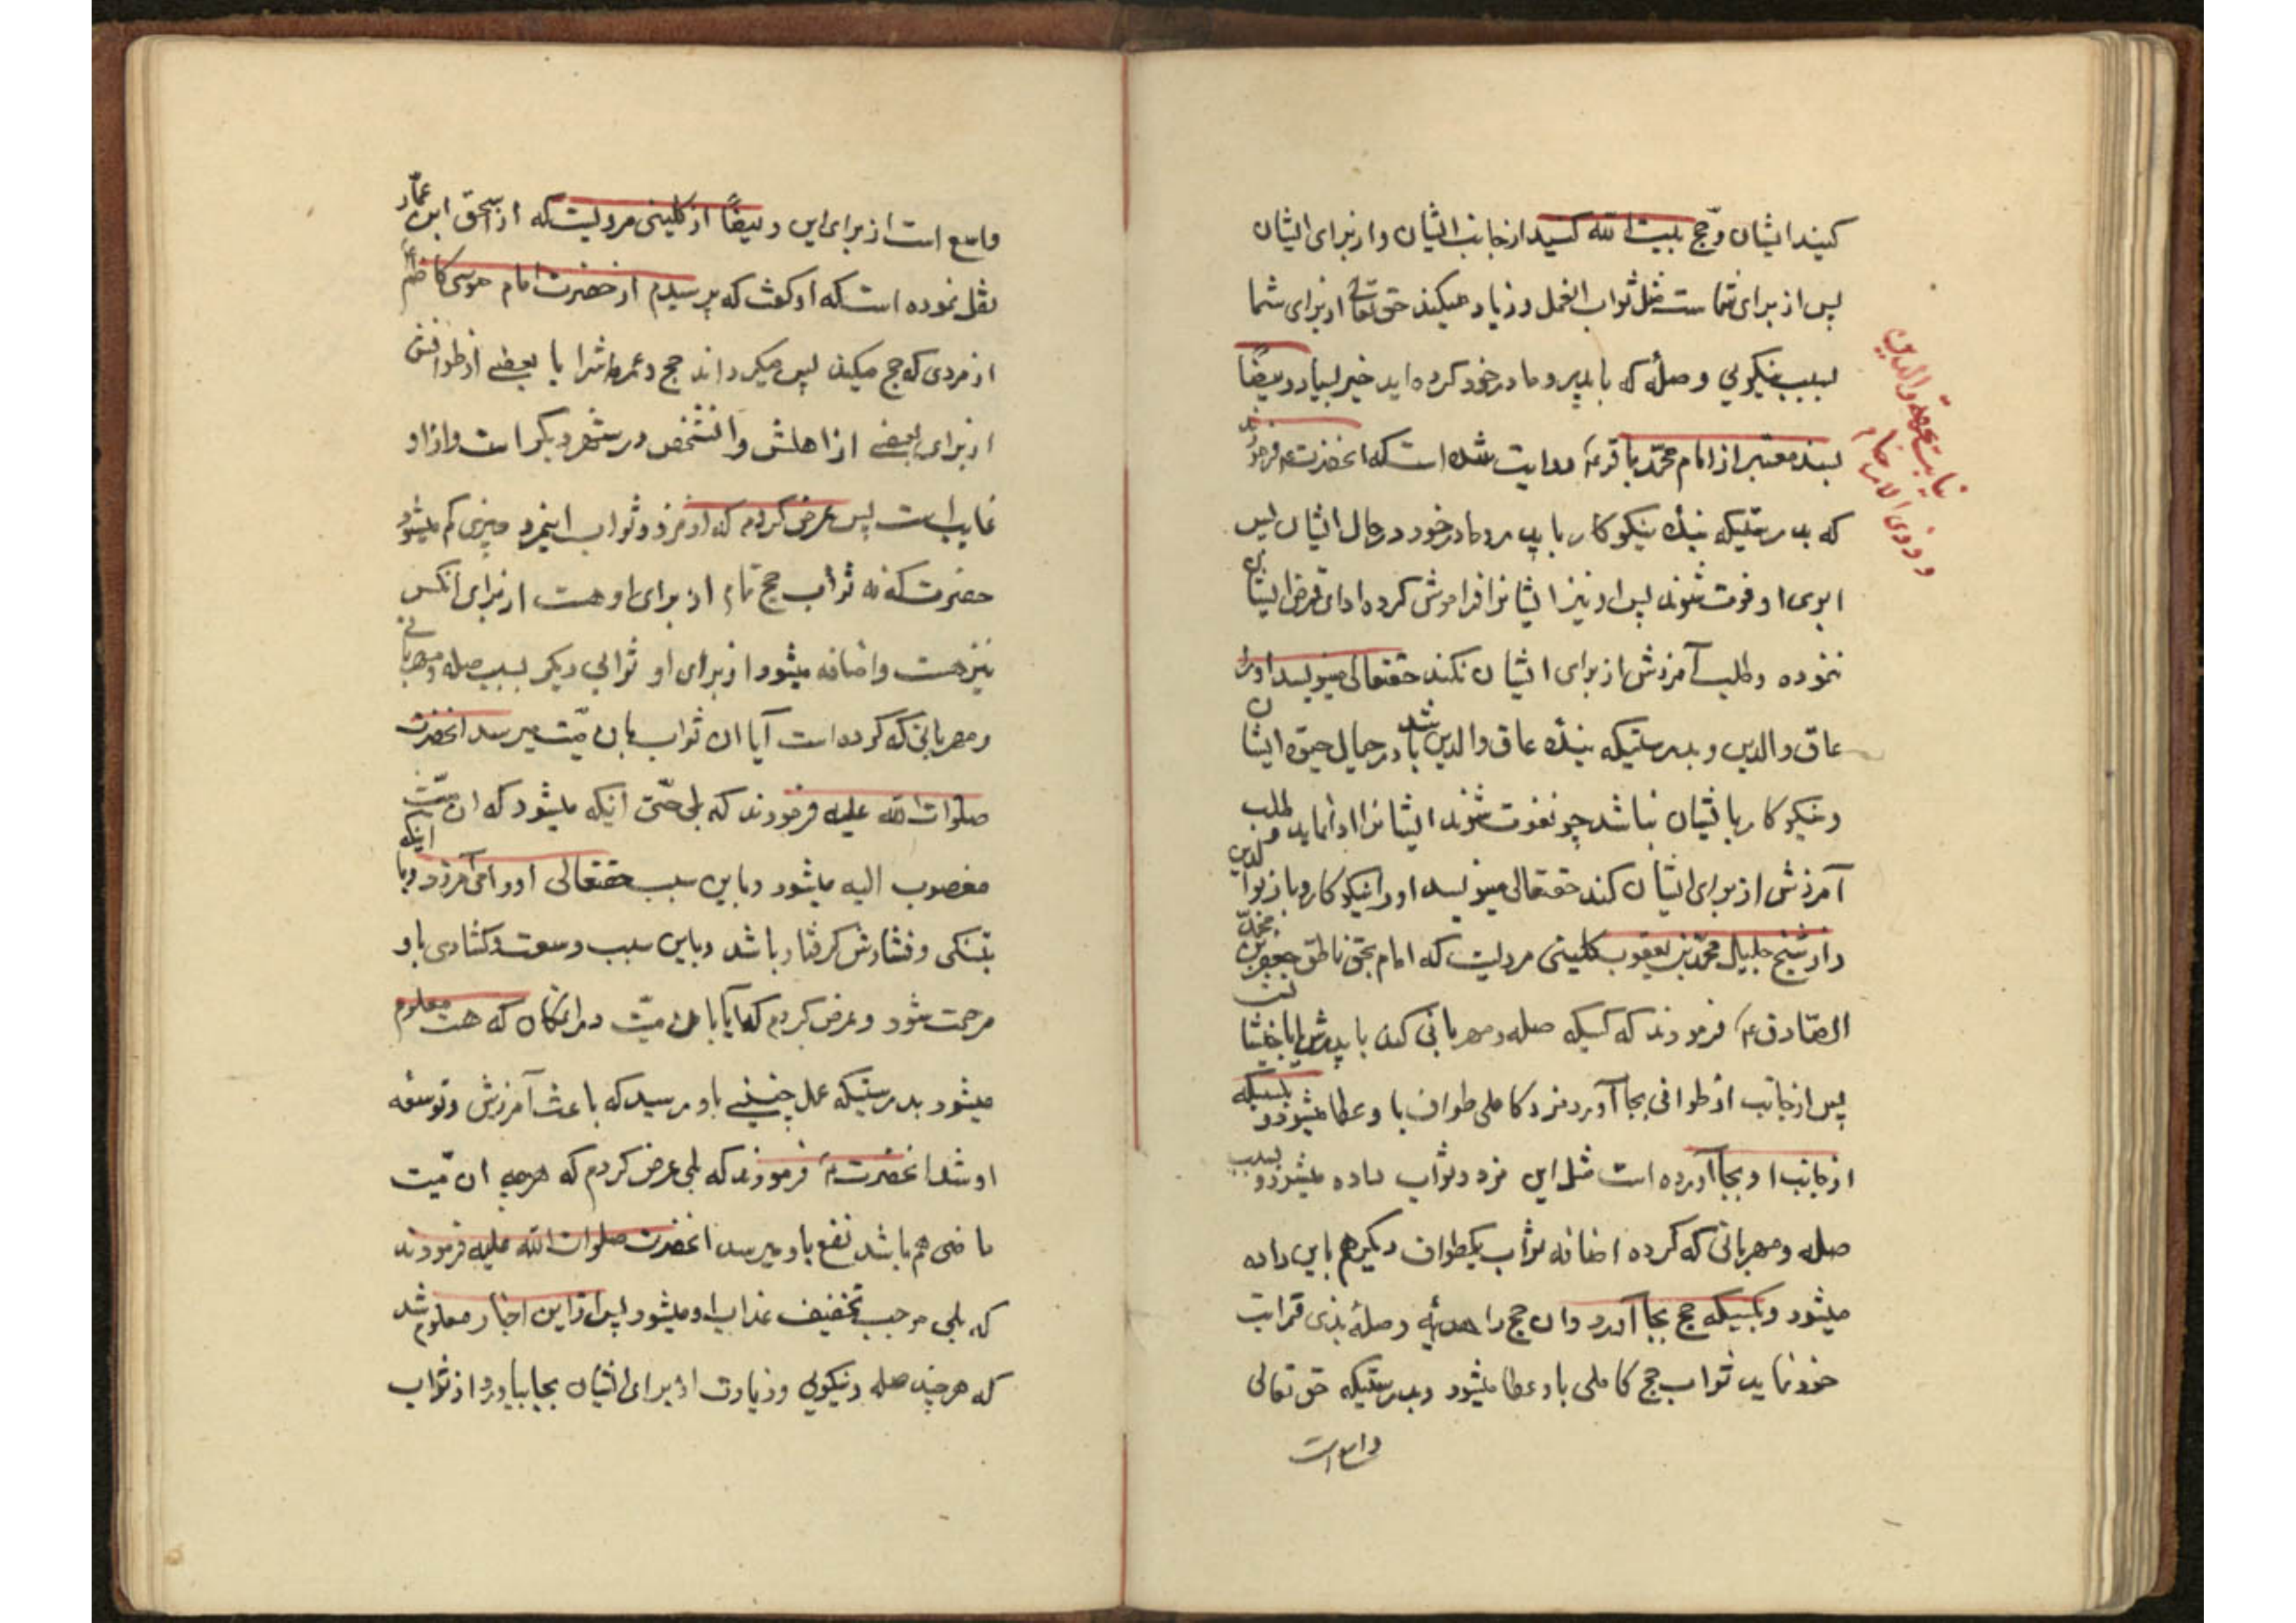 کنید ایشان و حج بیت الله کنید از جانب ایشان و از برای ایشان
پس از برای شماست مثل ثواب انعمل و زیاد میکند حق تعالی از برای شما
بسبب نیکوئی و صلهٔ که با پدر و مادر خود کرده اید خیر بسیار و ایضاً
بسند معتبر از امام محمّد باقر ع روایت شده است که انحضرت ع فرمودند
که بدرستیکه بندهٔ نیکوکار با پدر و مادر خود در حال ایشان پس
ابوی او فوت شوند پس او نیز ایشانرا فراموش کرده ادای قرض ایشان
ننموده و طلب آمرزش از برای ایشان نکند حقتعالی مینویسد او را
عاق والدین و بدرستیکه بندهٔ عاق والدین باشد در حیال حیوة ایشان
و نیکوکار باایشان نباشد چونفوت شوند ایشانرا ادا نماید و طلب
آمرزش از برای ایشان کند حقتعالی مینویسد او را نیکوکار و بار بوالدین
و از شیخ جلیل محمّد بن یعقوب کلینی مرویست که امام بحق ناطق جعفر بن محمّد
الصّادق ع فرمودند که کسیکه صله و مهربانی کند با پدرش یا باخویشانش
پس از جانب از طوافی بجا آورد مزد کاملی طواف باو عطا میشود و بکسیکه
از جانب او بجا آورده است مثل این مزد و ثواب داده میشود و بسبب
صله و مهربانی که کرده اضافه ثواب یکطواف دیگر هم باین داده
میشود و بکسیکه حج بجا آورد و ان حج را هدیّه و صلهٔ بذی قرابت
خود نماید ثواب حج کاملی باو عطا میشود و بدرستیکه حق تعالی
واسع است
نیابت بجهة والدین
و ذوی الارحام
واسع است از برای این و ایضاً از کلینی مرویست که از اسحق ابن عمّار
نقل نموده است که او کفت که پرسیدم از حضرت امام موسی کاظم ع
از مردی که حج میکند پس میکرداند حج و عمره اشرا یا بعضی از طوافش
از برای بعضی از اهلش و انشخص در شهر دیکر است و از او
غایب است پس عرض کردم که از مزد و ثواب اینمرد چیزی کم میشود
حضرت کفت ثواب حج تمام از برای او هست از برای انکس
نیز هست و اضافه میشود از برای او ثوابی دیکر بسبب صله و مهربانی
و مهربانی که کرده است آیا ان ثواب بان میّت میرسد انحضرت
صلوات الله علیه فرمودند که بلی حتّی اینکه میشود که ان میّت
مغضوب الیه میشود و باین سبب حقتعالی او را می آمرزد و یا اینکه
بتنکی و فشارش کرفتار باشد و باین سبب وسعت و کشادی باو
مرحمت شود و عرض کردم که آیا بان میّت در انمکان که هست معلوم
میشود بدرستیکه عمل چنینی باو رسید که باعث آمرزش و توسعه
او شد انحضرت ع فرمودند که بلی عرض کردم که هر چه ان میّت
ناصبی هم باشد نفع باو میرسد انحضرت صلوات الله علیه فرمودند
که بلی موجب تخفیف عذاب او میشود پس از این اخبار معلوم شد
که هر چند صله و نیکوئی و زیارت از برای ایشان بجا بیاورد از ثواب